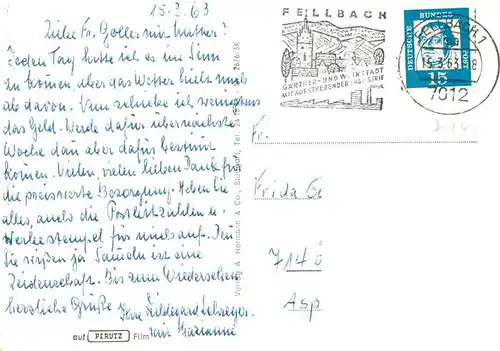 15.3.63
Liebe Fr. Goller mit Mutter!
Jeden Tag hatte ich es im Sinn
zu kommen, aber das Wetter hielt mich
als davon. Nun schicke ich wenigstens
das Geld. Werde dafür übernächste
Woche dann aber bestimmt
kommen. Vielen, vielen lieben Dank für
die preiswerte Besorgung. Heben Sie
alles, auch die Postleitzahlen u.
Werbestempel für mich auf. Denn
Sie wissen ja Sammeln ist eine
Leidenschaft. Bis zum Wiedersehen
herzliche Grüße
Ihre Hildegard
mit Marianne
auf PERUTZ Film
Verlag A. Herrmann & Co., Stuttgart
FELLBACH
GÄRTNER- UND WEINSTADT
MIT AUFSTREBENDER INDUSTRIE
DEUTSCHE
BUNDES
POST
15
FELLBACH
15.3.63
7012
Fr.
Frida G
714
Asp